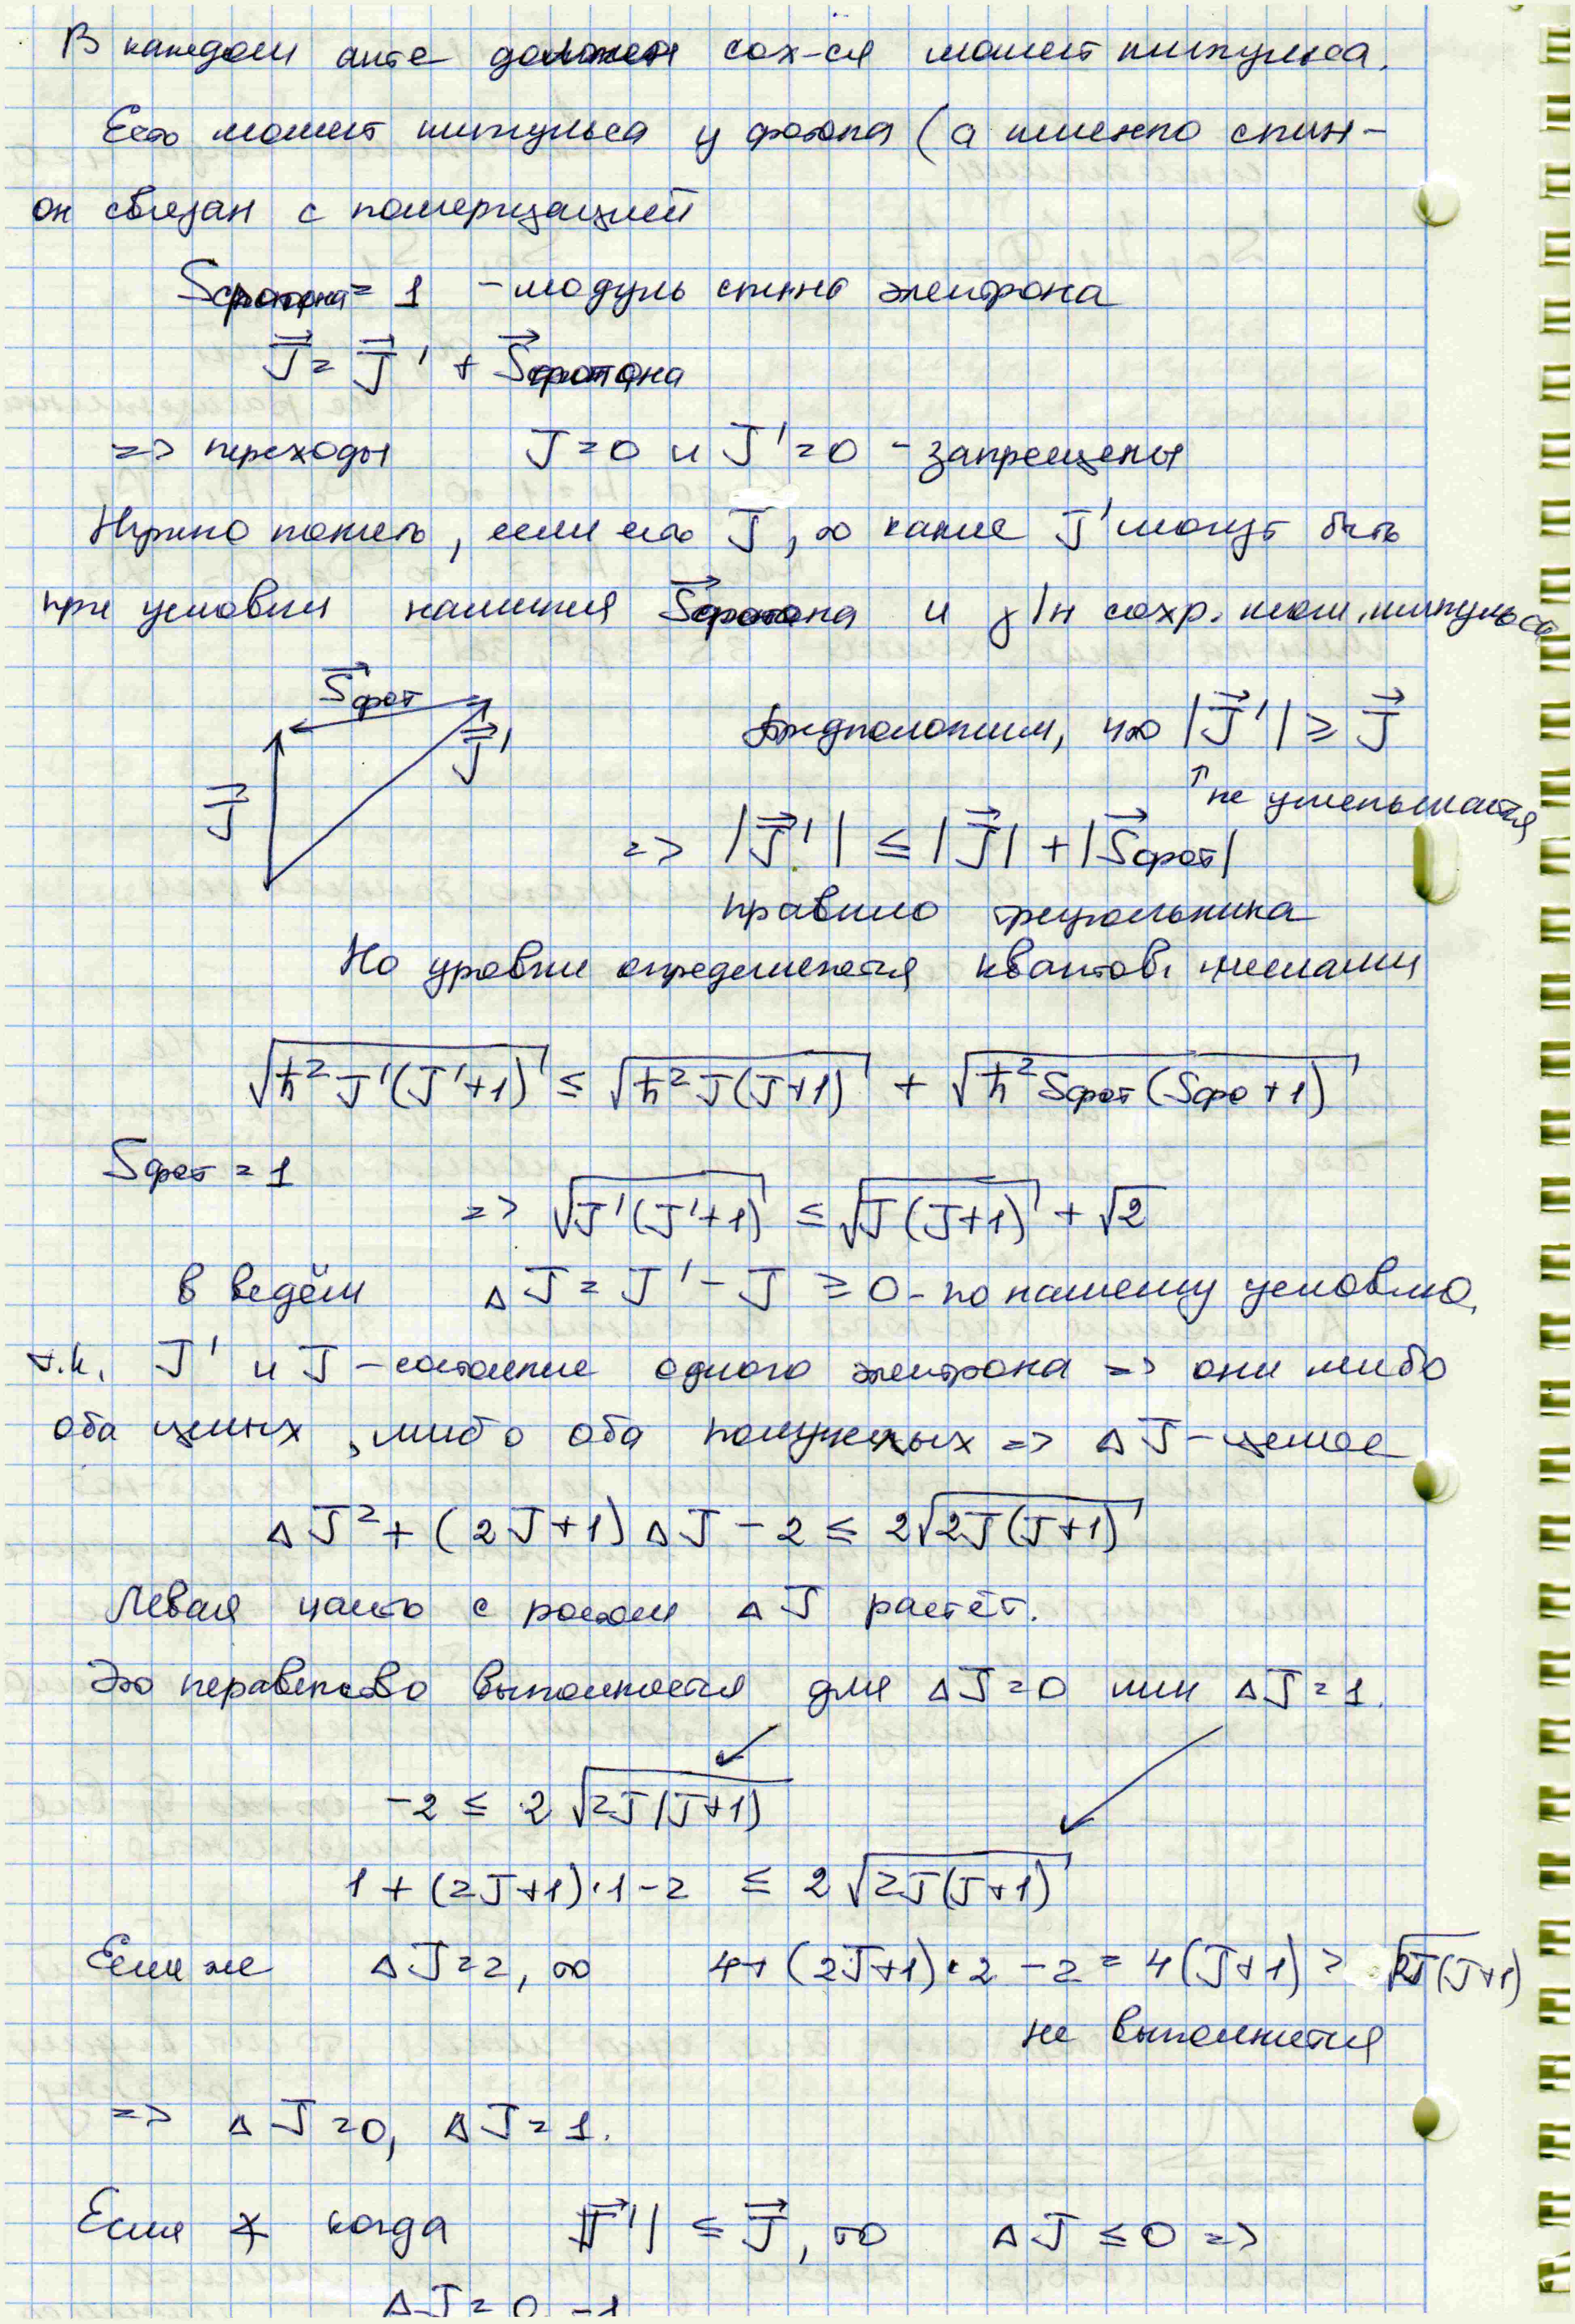 В каждом акте должен сох-ся момент импульса.
Есть момент импульса у фотона (а именно спин-
он связан с поляризацией
Sфотона = 1 - модуль спина электрона
J⃗ = J⃗' + S⃗фотона
=> переходы J=0 и J'=0 - запрещены
Нужно понять, если есть J, то какие J' могут быть
при условии наличия S⃗фотона и у/н сохр. мом. импульса
S⃗фот
J⃗'
J⃗
Предположим, что |J⃗'| ≥ J⃗
↑ не уменьшается
=> |J⃗'| ≤ |J⃗| + |S⃗фот|
правило треугольника
Но уровни определяются квантов. числами
√(ħ²J'(J'+1)) ≤ √(ħ²J(J+1)) + √(ħ²Sфот(Sфо+1))
Sфот = 1
=> √(J'(J'+1)) ≤ √(J(J+1)) + √2
введём ΔJ = J' - J ≥ 0 - по нашему условию,
т.к. J' и J - состояние одного электрона => они либо
оба целых, либо оба полуцелых => ΔJ - целое
ΔJ² + (2J+1)ΔJ - 2 ≤ 2√(2J(J+1))
Левая часть с ростом ΔJ растёт.
Это неравенство выполняется для ΔJ=0 или ΔJ=1.
-2 ≤ 2√(2J(J+1))
1+(2J+1)·1-2 ≤ 2√(2J(J+1))
Если же ΔJ=2, то 4+(2J+1)·2-2 = 4(J+1) > √(2J(J+1))
не выполняется
=> ΔJ=0, ΔJ=1.
Если когда |J⃗'| ≤ J⃗, то ΔJ ≤ 0 =>
ΔJ = 0, -1